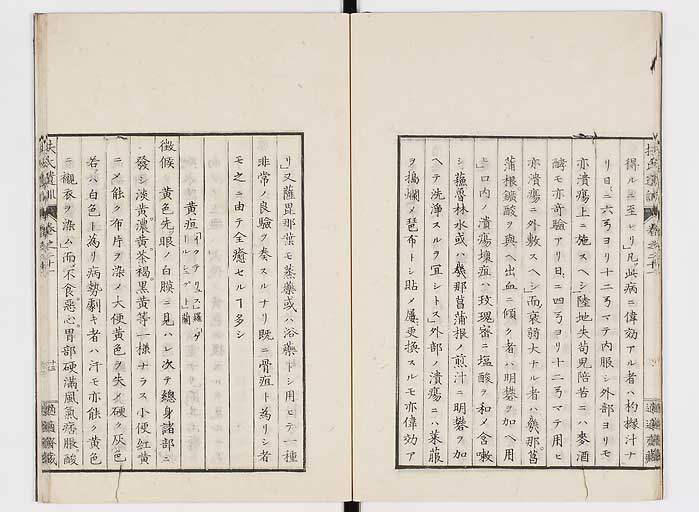 得ルニ至レリ」凡此病ニ偉効アル者ハ枸櫞汁ナ
リ日ニ六弓ヨリ十二弓マテ內服シ外部ヨリモ
亦潰瘍上ニ施スヘシ」陸地失苟兒陪苦ニハ麥酒
酵モ亦奇驗アリ日ニ四弓ヨリ十二弓マテ用ヒ
亦潰瘍ニ外敷スヘシ」而衰弱大ナル者ハ幾那菖
蒲根鑛酸ヲ與ヘ出血ニ傾ク者ハ明礬ヲ加ヘ用
口內ノ潰瘍壞疽ハ玫瑰蜜ニ塩酸ヲ和メ含嗽
シ蘓魯林水或ハ幾那菖蒲根ノ煎汁ニ明礬ヲ加
ヘテ洗淨スルヲ冝シトス」外部ノ潰瘍ニハ萊菔
ヲ搗爛メ琶布トシ貼メ屢更換スルモ亦偉効ア
扶氏遺訓 卷之二十一
適適齋藏
リ又薩毘那葉モ蒸藥或ハ浴藥トシ用ヒテ一種
非常ノ良驗ヲ奏スルナリ既ニ骨疽ト爲リシ者
モ之ニ由テ全癒セルヿ多シ
黃疸
徴候 黃色先眼ノ白膜ニ見ハレ次テ總身諸部ニ
發シ淡黃濃黃茶褐黑黃等一様ナラス小便紅黃
ニメ餘ク布片ヲ染メ大便黃色ヲ失メ硬ク灰色
若ハ白色ト爲リ病勢劇キ者ハ汗モ亦餘ク黃色
ニ襯衣ヲ染ム」而不食惡心胃部硬滿風氣痞脹酸
扶氏遺訓 卷之二十一
適適齋藏